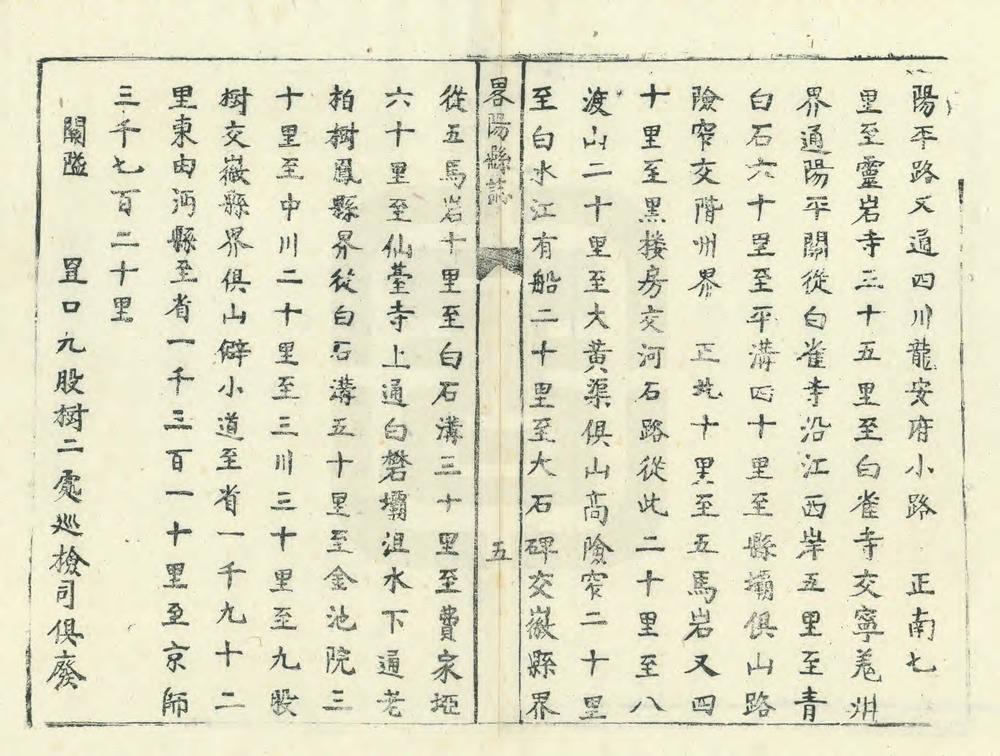 陽平路又通四川龍安府小路 正南七
里至靈岩寺三十五里至白雀寺交寧羗州
界通陽平關從白雀寺沿江西岸五里至青
白石六十里至平溝四十里至縣壩俱山路
險窄交階州界 正北十里至五馬岩又四
十里至黑楼房交河石路從此二十里至八
渡山二十里至大黃渠俱山高險窄二十里
至白水江有船二十里至大石碑交徽縣界
畧陽縣誌
五
從五馬岩十里至白石溝三十里至費家埡
六十里至仙臺寺上通白礬壩沮水下通老
柏樹鳳縣界從白石溝五十里至金池院三
十里至中川二十里至三川三十里至九股
樹交徽縣界俱山僻小道至省一千九十二
里東由沔縣至省一千三百一十里至京師
三千七百二十里
關隘 罝口九股樹二處巡檢司俱廢